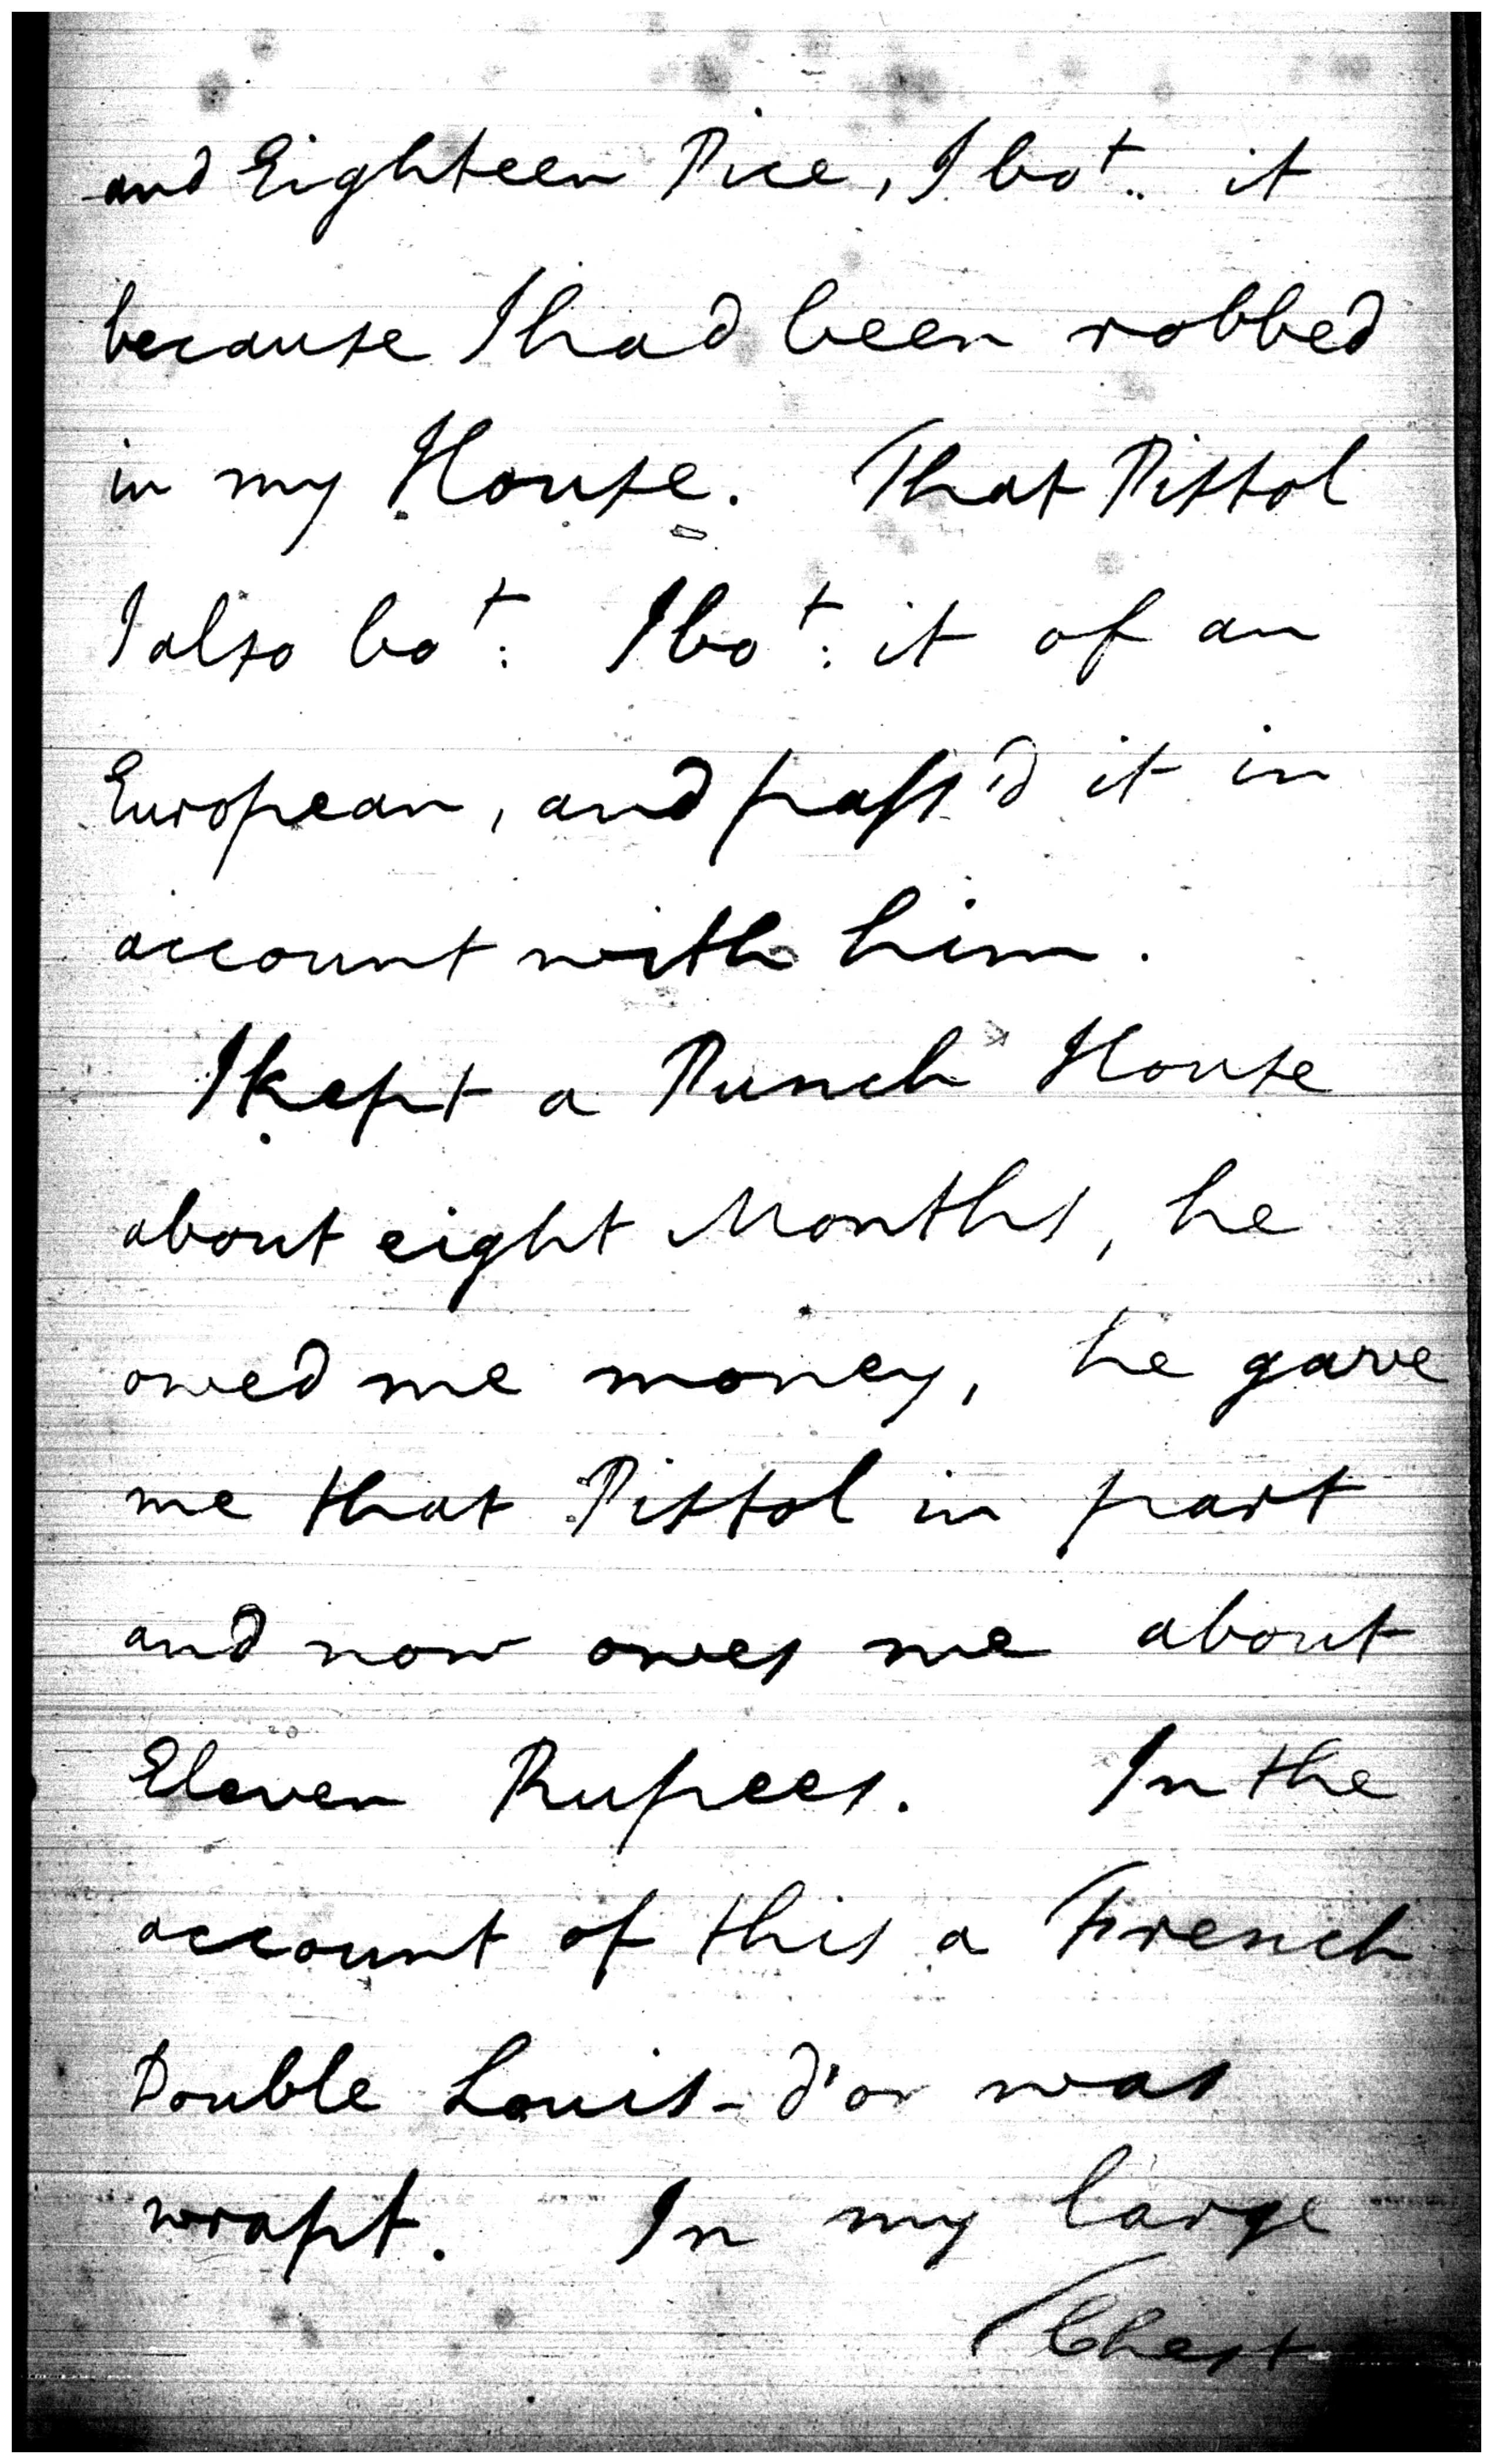 and Eighteen Pice, I bot. it
because I had been robbed
in my House. That Pistol
I also bot: I bot: it of an
European, and pass'd it in
account with him.
I kept a Punch House
about eight Months, he
owed me money, he gave
me that Pistol in part
and now owes me about
Eleven Rupees. In the
account of this a French
Double Louis-d'or was
wrapt. In my large
Chest